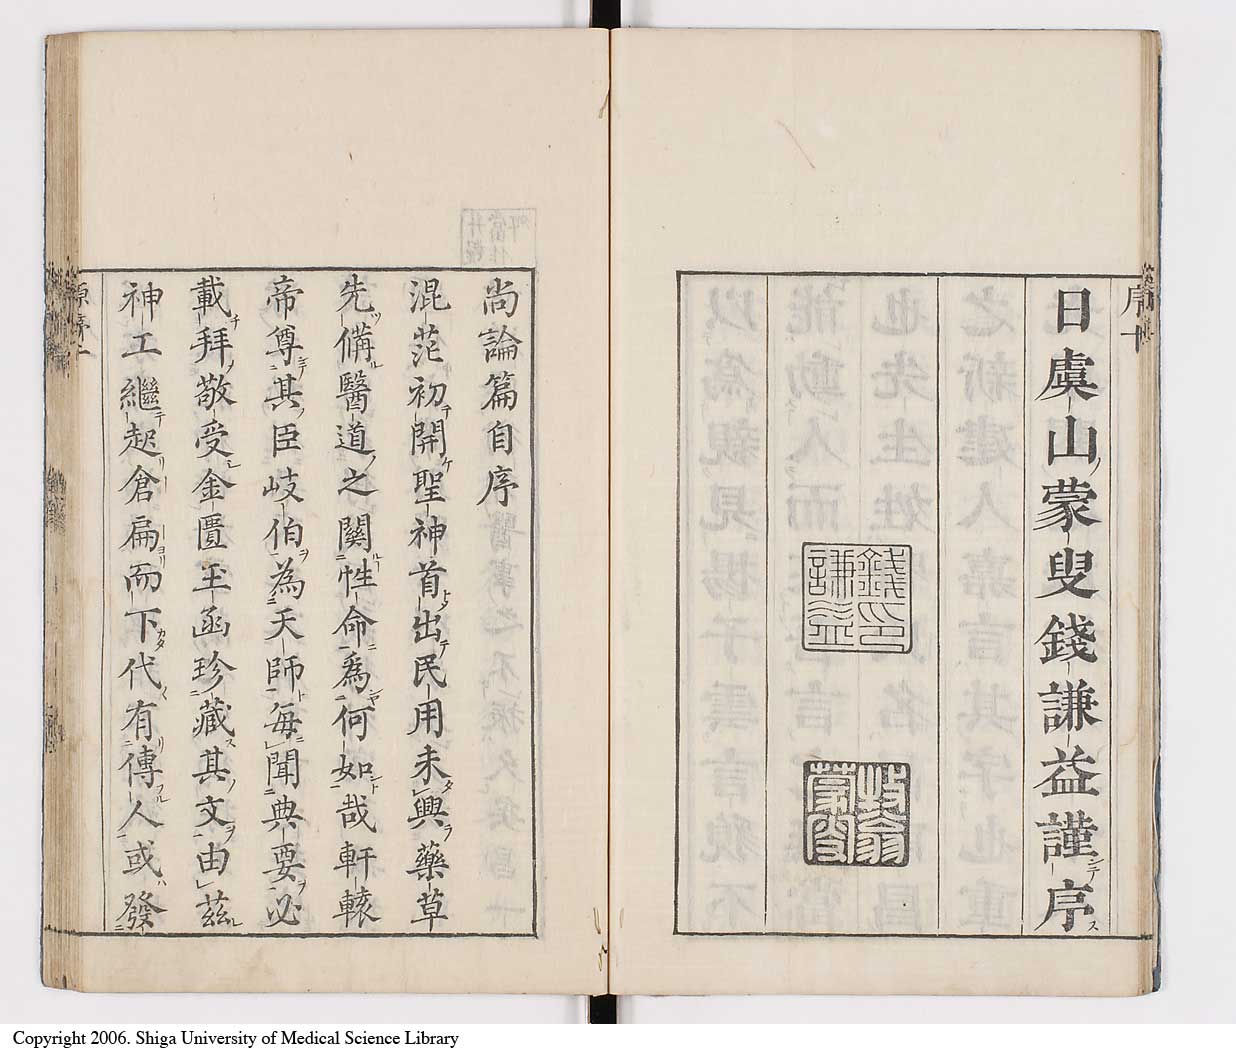 日虞山蒙叟錢謙益謹序
錢謙益印
牧翁蒙叟
序十
尚論篇自序
混茫初開聖神首出民用未興藥草
先備醫道之關性命爲何如哉軒轅
帝尊其臣岐伯為天師每聞典要必
載拜敬受金匱玉函珍藏其文由茲
神工繼起倉扁而下代有傳人或發
原序一
Copyright 2006. Shiga University of Medical Science Library